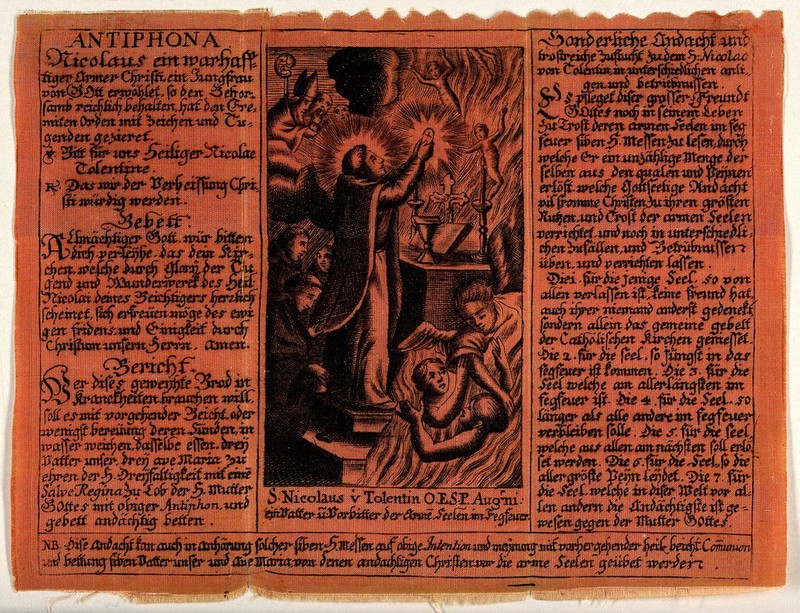 ANTIPHONA
Nicolaus ein warhaff
tiger Armer Christi, ein Jungfrau
von GOtt erwöhlet, so den Gehor=
samb reichlich behalten, hat den Ere
miten Orden mit Zeichen und Tu=
genden gezieret.
℣. Bitt für uns Heiliger Nicolae
Tolentine.
℟. Das wir der Verheissung Chri
sti würdig werden.
Gebett.
Allmächtiger Gott, wür bitten
dich verleyhe, das dein Kir=
chen, welche durch Glory der Tu
gend und Wunderwerck des Heil
Nicolai deines Beichtigers herrlich
scheinet, sich erfreuen möge des ewi
gen fridens, und Einigkeit durch
Christum unsern Herrn. Amen.
Bericht.
Wer dises geweyhte Brod in
Kranckheiten brauchen will
soll es mit vorgehender Beicht, oder
wenigst bereüung deren Sünden, in
wasser weichen, dasselbe essen, drey
Vatter unser, drey ave Maria zu
ehren der H. Dreyfaltigkeit mit eine
Salve Regina zu Lob der H. Mutter
GOttes mit obiger Antiphon, und
gebett andächtig betten.
S. Nicolaus v Tolentin O.E.S.P. Augni.
ein Vatter u Vorbitter der Arme Seelen im Fegfeuer.
Sonderliche Andacht und
trostreiche Zuflucht zu dem H. Nicolao
von Tolentin in unterschiedlichen anli=
gen und betribnussen.
Es pfleget diser grosser Freundt
GOttes noch in seinem Leben
Zu Trost deren armen Seelen im feg
feuer siben H. Messen zu lesen, durch
welche Er ein unzählige Menge der
selben aus den qualen und Peynen
erlöst, welche Gottseelige Andacht
vil fromme Christen zu ihren grösten
Nutzen, und Trost der armen Seelen
verrichtet, und noch in unterschiedli=
chen Zufällen, und Betrübnussen
üben, und verrichten lassen.
Die 1. für die jenige Seel, so von
allen verlassen ist, keine freund hat,
auch ihrer niemand anderst gedenckt,
sondern allein das gemeine gebett
der Catholischen Kirchen geniesset.
Die 2. für die seel, so jüngst in das
fegfeuer ist kommen. Die 3. für die
Seel welche am allerlängsten im
fegfeuer ist. Die 4. für die Seel, so
länger als alle andere im fegfeuer
verbleiben solle. Die 5. für die seel
welche aus allen am nächsten soll erlö
set werden. Die 6. für die Seel, so die
allergröste Pejn leydet. Die 7. für
die Seel, welche in diser Welt vor al
len andern die Andächtigste ist ge=
wesen gegen der Mutter GOttes.
NB. Dise Andacht kan auch in anhörung solcher siben H. Messen auf obige Intention und meynung mit vorhergehender heil. beicht Comunion
und bettung siben Vatter unser und Ave Maria, von denen andächtigen Christen vor die arme Seelen geübet werden.